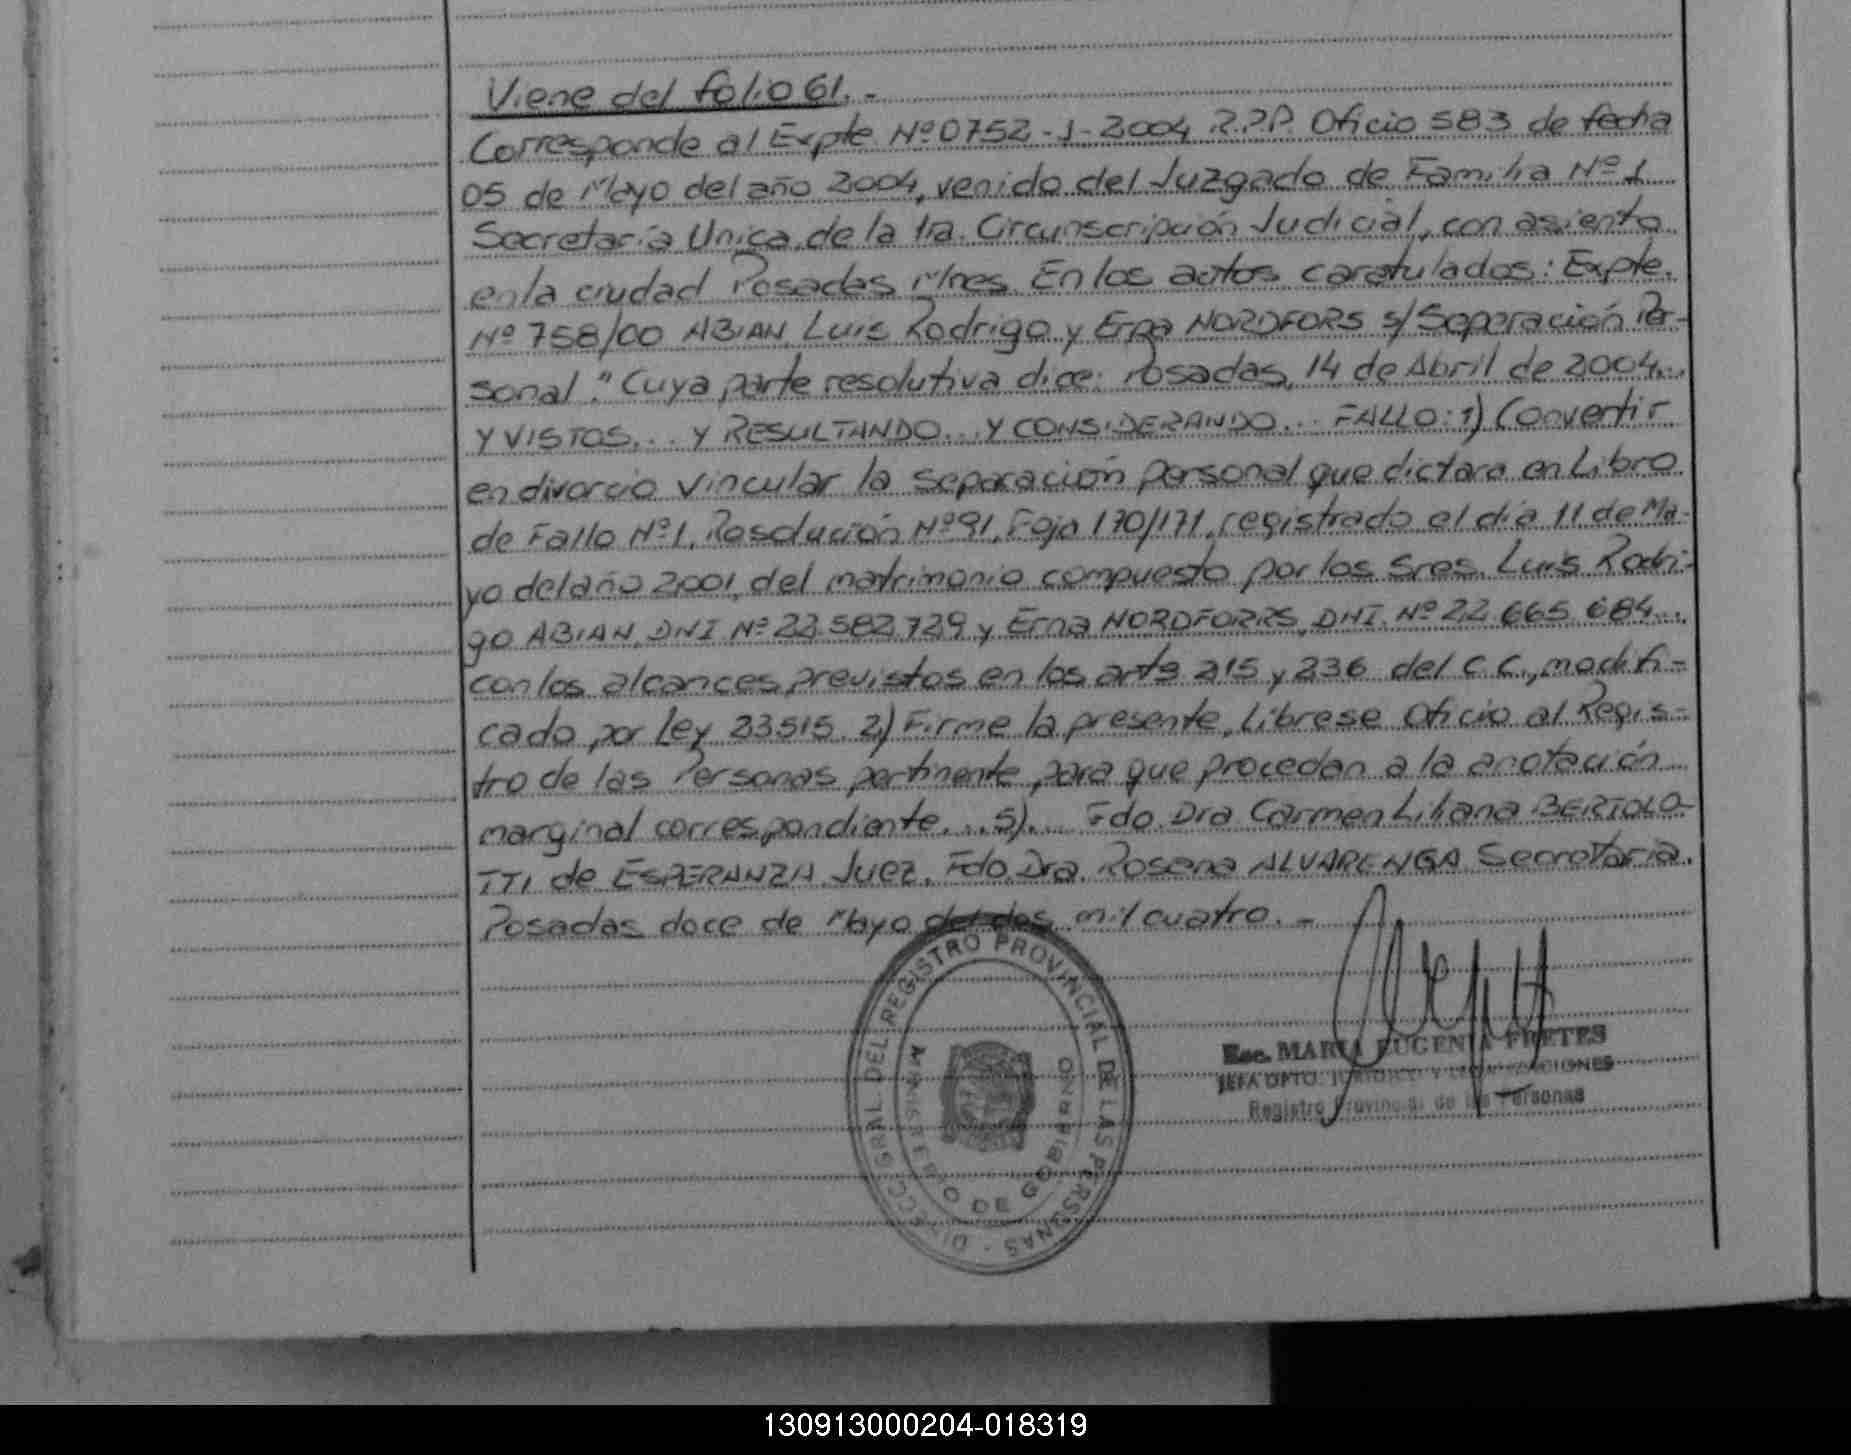 Viene del folio 61.-
Corresponde al Expte. Nº 0752-J-2004 R.P.P. Oficio 583 de fecha
05 de Mayo del año 2004, venido del Juzgado de Familia Nº 1
Secretaría Unica de la 1ra. Circunscripción Judicial, con asiento
en la ciudad Posadas Mnes. En los autos caratulados: Expte.
Nº 758/00 ABIAN Luis Rodrigo y Erna NORDFORS s/ Separación Per-
sonal." Cuya parte resolutiva dice: Posadas, 14 de Abril de 2004...
Y VISTOS... Y RESULTANDO... Y CONSIDERANDO... FALLO: 1) Convertir
en divorcio vincular la separación personal que dictara en Libro
de Fallo Nº 1, Resolución Nº 91, Foja 170/171, registrado el día 11 de Ma-
yo del año 2001, del matrimonio compuesto por los Sres. Luis Rodri-
go ABIAN, DNI Nº 22.582.729 y Erna NORDFORRS, DNI. Nº 22.665.684...
con los alcances previstos en los arts 215 y 236 del C.C., modifi-
cado por Ley 23515. 2) Firme la presente, Líbrese Oficio al Regis-
tro de las Personas pertinente, para que procedan a la anotación
marginal correspondiente... 5)... Fdo. Dra Carmen Liliana BERTOLO-
TTI de ESPERANZA Juez. Fdo. Dra. Rosena ALVARENGA Secretaria.
Posadas doce de Mayo del dos mil cuatro.-
DIRECC. GRAL. DEL REGISTRO PROVINCIAL DE LAS PERSONAS
MINISTERIO DE GOBIERNO
Esc. MARIA EUGENIA FRETES
JEFA DPTO. JURIDICO Y
Registro Provincial de las Personas
130913000204-018319